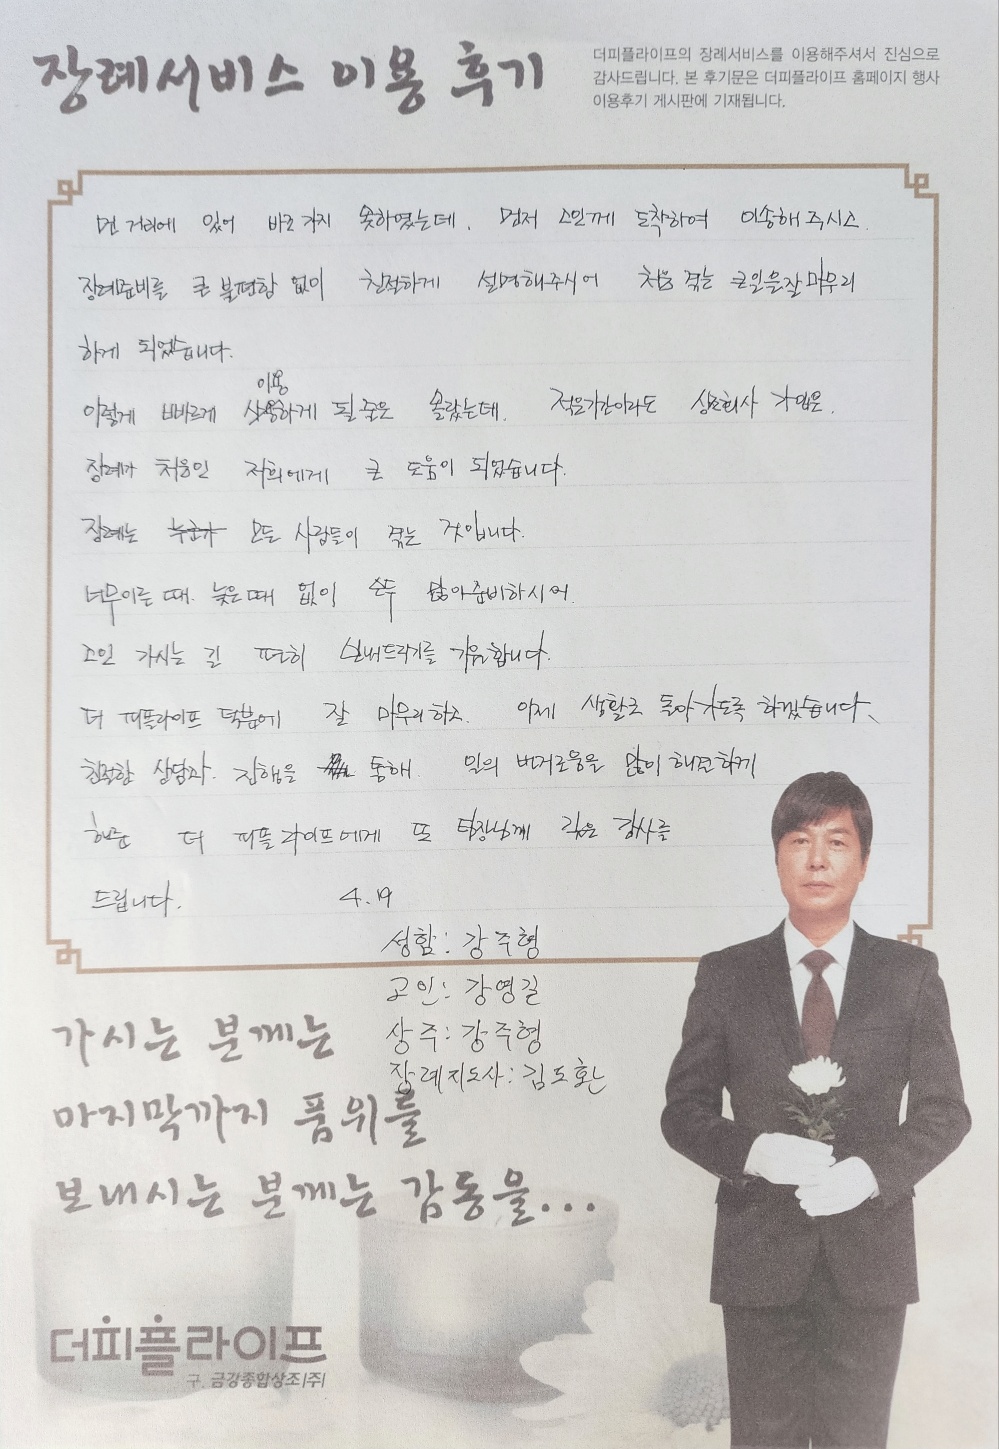 장례서비스 이용 후기
더피플라이프의 장례서비스를 이용해주셔서 진심으로
감사드립니다. 본 후기문은 더피플라이프 홈페이지 행사
이용후기 게시판에 기재됩니다.
먼 거리에 있어 바로 가지 못하였는데, 먼저 고인께 도착하여 이송해 주시고
장례준비를 큰 불편함 없이 친절하게 설명해주시어 처음 겪는 큰일을 잘 마무리
하게 되었습니다.
이용
이렇게 빠르게 사용하게 될 줄은 몰랐는데, 적은기간이라도 상조회사 가입은
장례가 처음인 저희에게 큰 도움이 되었습니다.
장례는 누군가 모든 사람들이 겪는 것입니다.
너무이른 때, 늦은때 없이 모두 준비하시어,
고인 가시는 길 편히 보내드리기를 기원합니다.
더 피플라이프 덕분에 잘 마무리하고 이제 생활로 돌아가도록 하겠습니다.
친절한 상담과 진행을 통해 일의 번거로움을 많이 해소하게
해준 더 피플라이프에게 또 팀장님께 깊은 감사를
드립니다. 4.19
성함: 강주형
고인: 강영길
상주: 강주형
장례지도사: 김도환
가시는 분께는
마지막까지 품위를
보내시는 분께는 감동을...
더피플라이프
구. 금강종합상조(주)